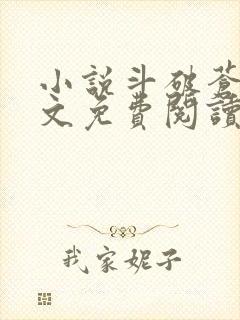 小説斗破蒼
文免費閱讀
我家妮子